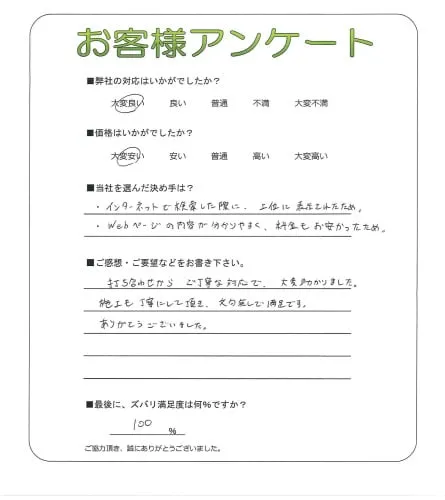 お客様アンケート
■弊社の対応はいかがでしたか？
大変良い 良い 普通 不満 大変不満
■価格はいかがでしたか？
大変安い 安い 普通 高い 大変高い
■当社を選んだ決め手は？
・インターネットで検索した際に、上位に表示されたため。
・Webページの内容が分かりやすく、料金もお安かったため。
■ご感想・ご要望などをお書き下さい。
打ち合わせから ご丁寧な対応で、大変助かりました。
施工も丁寧にして頂き、文句無しで満足です。
ありがとうございました。
■最後に、ズバリ満足度は何％ですか？
100 ％
ご協力頂き、誠にありがとうございました。